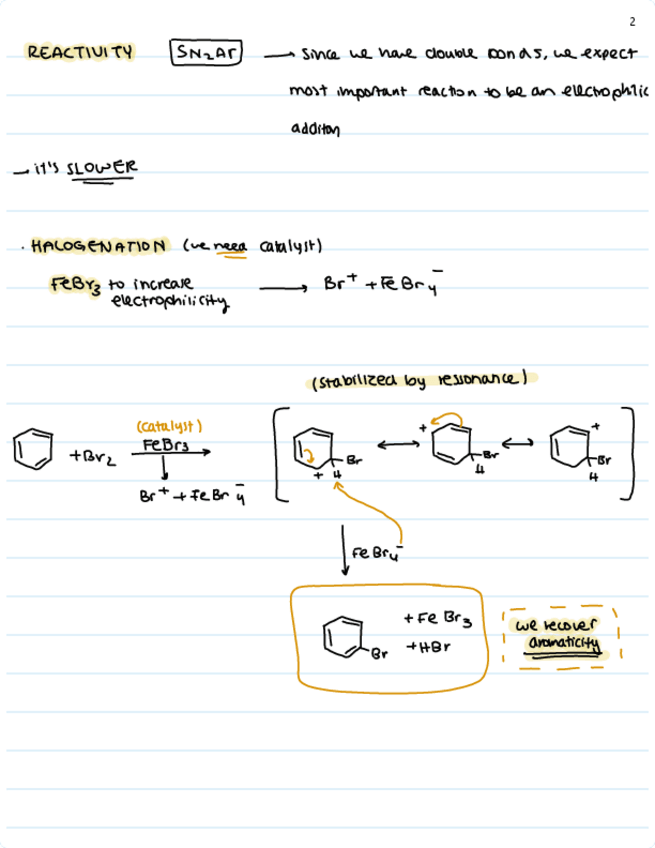 2
REACTIVITY SN2Ar → Since we have double bonds, we expect
most important reaction to be an electrophilic
additon
— it's SLOWER
· HALOGENATION (we need catalyst)
FeBr3 to increase → Br+ + FeBr4-
electrophilicity
(stabilized by ressonance)
(catalyst)
+Br2 FeBr3
Br+ + FeBr4-
Br Br + Br
+ H + H H
FeBr4-
+ FeBr3
Br + HBr
we recover
aromaticity